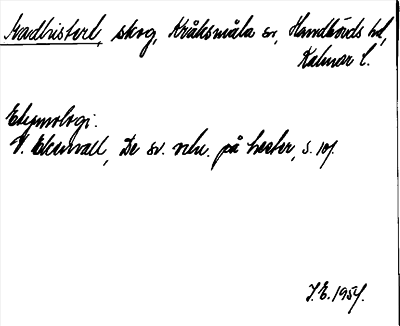 skog, Kråksmåla sn, Handbörds hd,
Kalmar l.
Etymologi:
V. Ekenvall, De sv. ortn. på hester, s.
J.E. 1954.